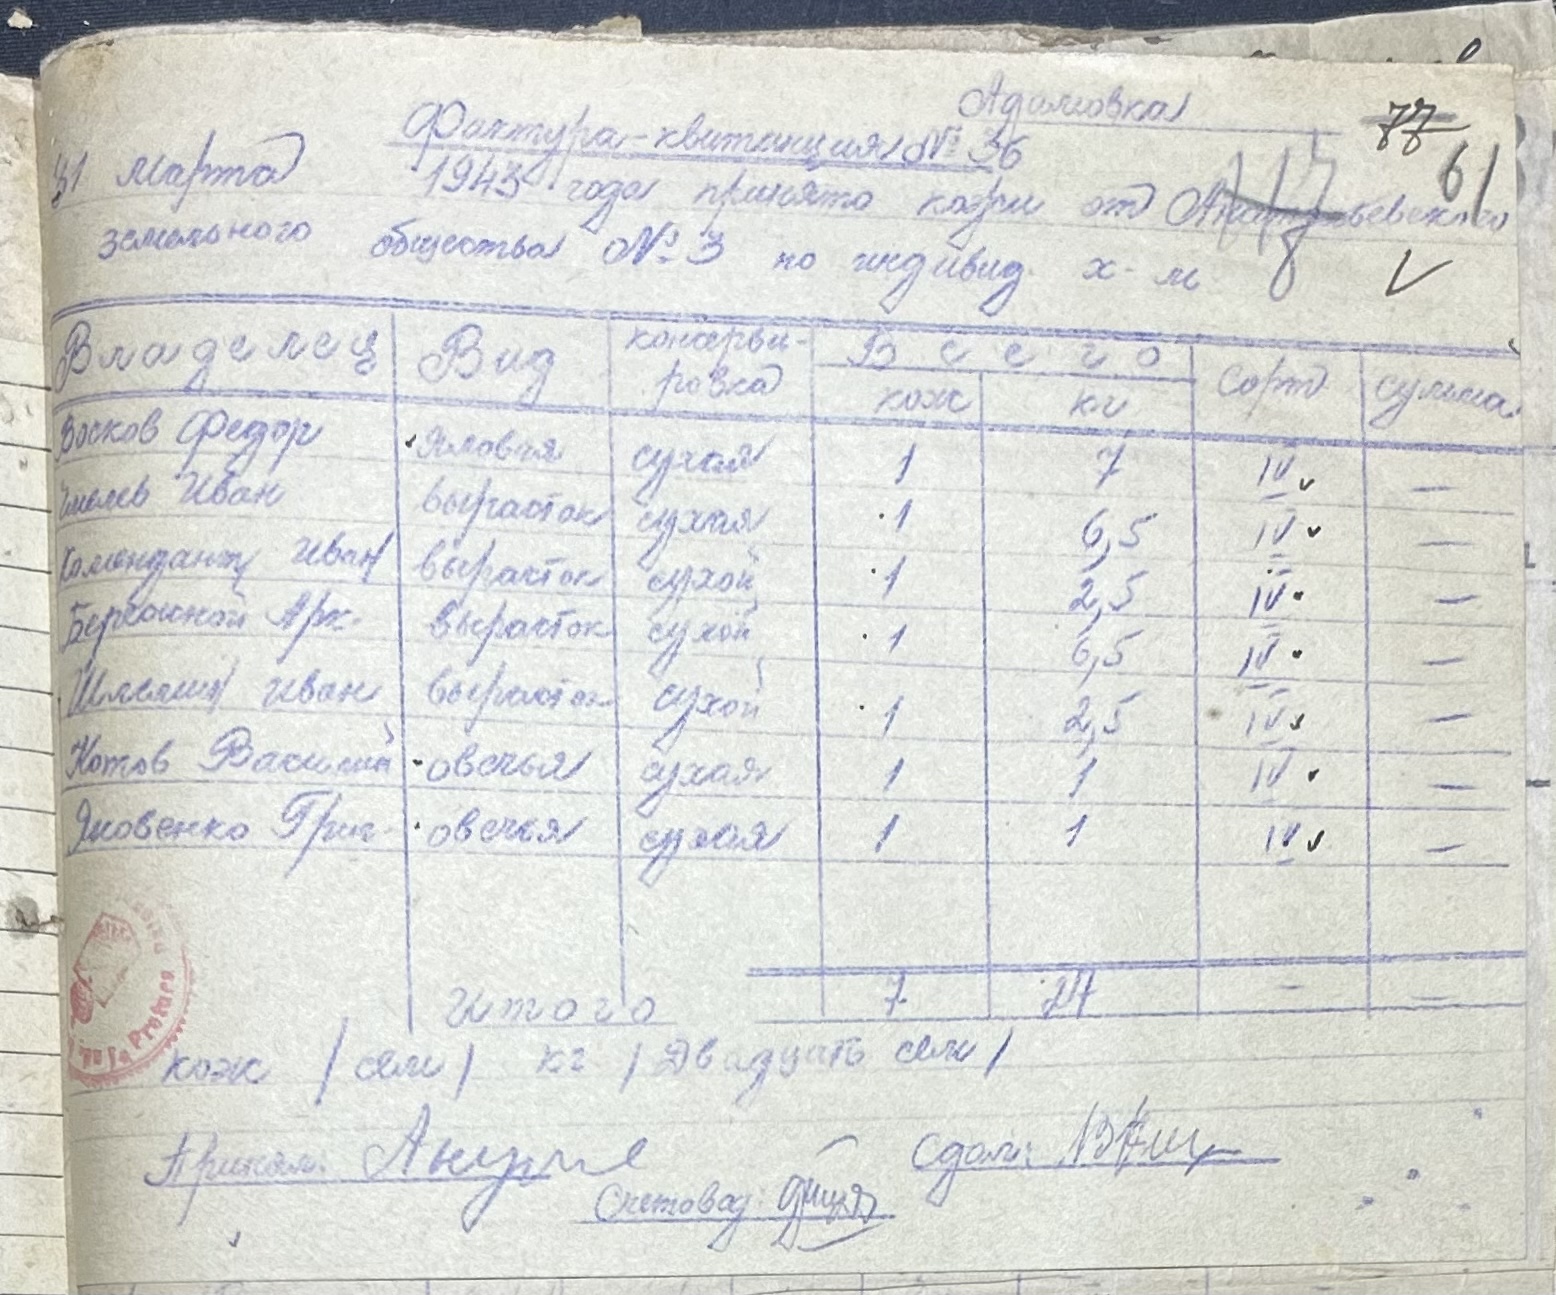 Адамовка
77
61
Фактура-квитанция № 36
31 марта 1943 года принято кожи от
земельного общества № 3 по индивид. х-м
Владелец Вид консерви-ровка Всего кож кг сорт сумма
Восков Федор яловая сухая 1 7 IV —
Иван вырасток сухая 1 6,5 IV —
Комендант Иван вырасток сухой 1 2,5 IV —
Арх. вырасток сухой 1 6,5 IV —
Иван вырасток сухой 1 2,5 IV —
Котов Василий овечья сухая 1 1 IV —
Яковенко Григ. овечья сухая 1 1 IV —
Итого 7 27 — —
кож /семь/ кг /Двадцать семь/
Принял: Сдал:
Счетовод: